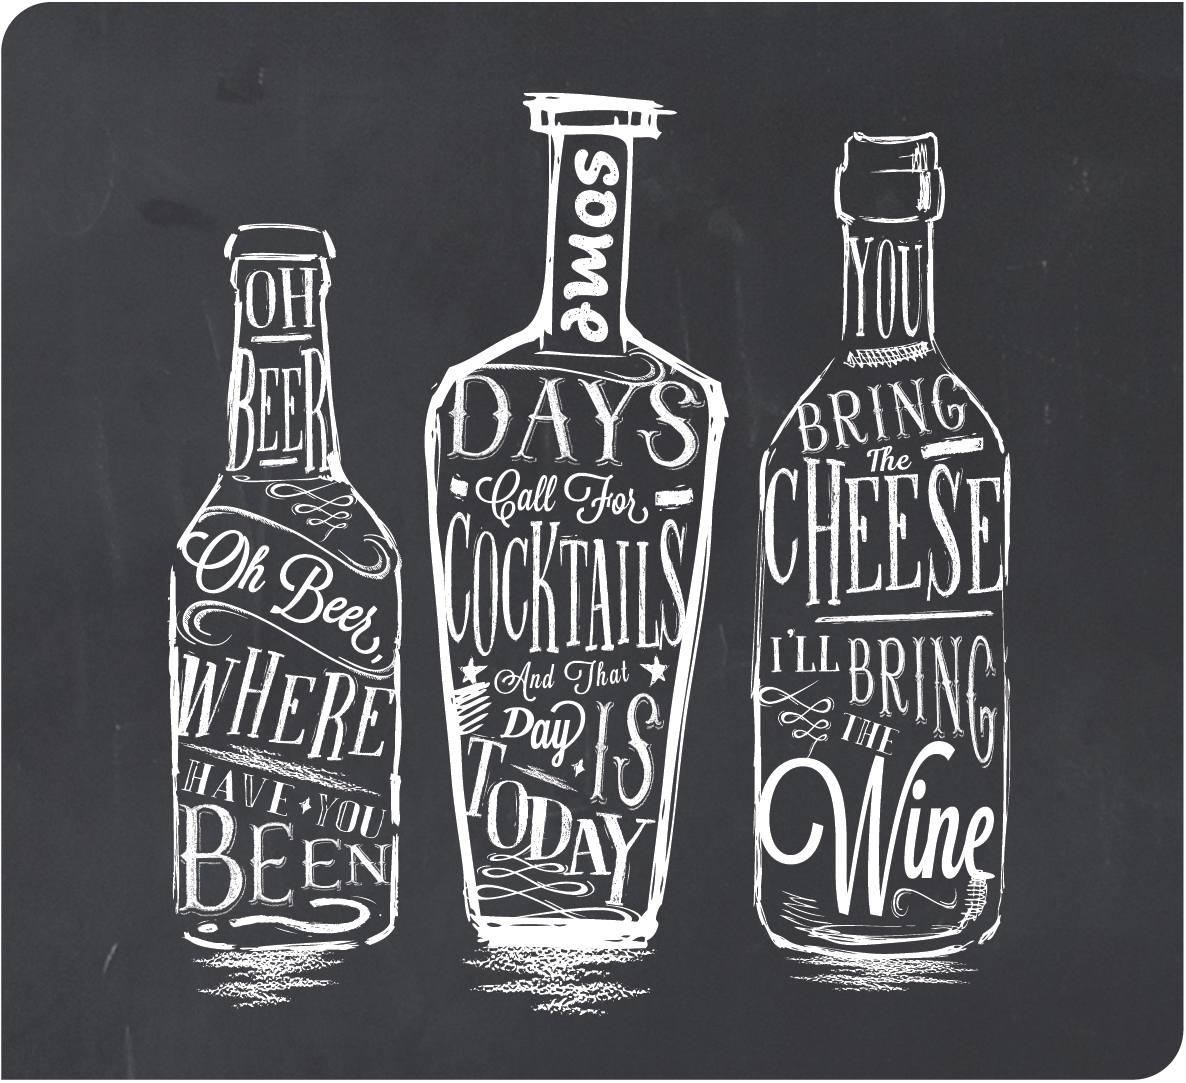 OH
BEER
Oh Beer,
WHERE
HAVE YOU
BEEN
some
DAYS
Call For
COCKTAILS
And That
Day IS
TODAY
YOU
BRING
The
CHEESE
I'LL BRING
THE
Wine